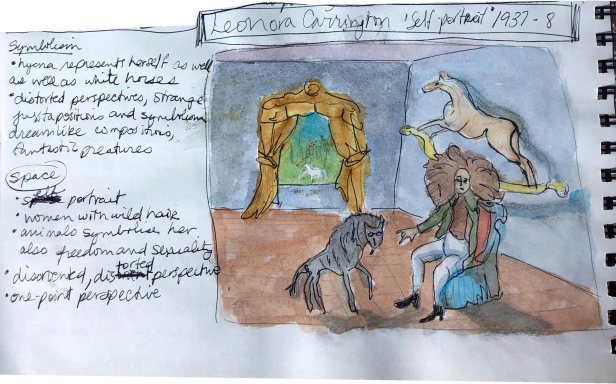 Leonora Carrington 'Self portrait' 1937-8
Symbolism
• hyena represents herself as well
as well as white horses
• distorted perspectives, strange
juxtapositions and symbolism
dreamlike compositions,
fantastic creatures
Space
• portrait
• women with wild hair
• animals symbolises her
also freedom and sexuality
• disortented, distorted perspective
• one-point perspective